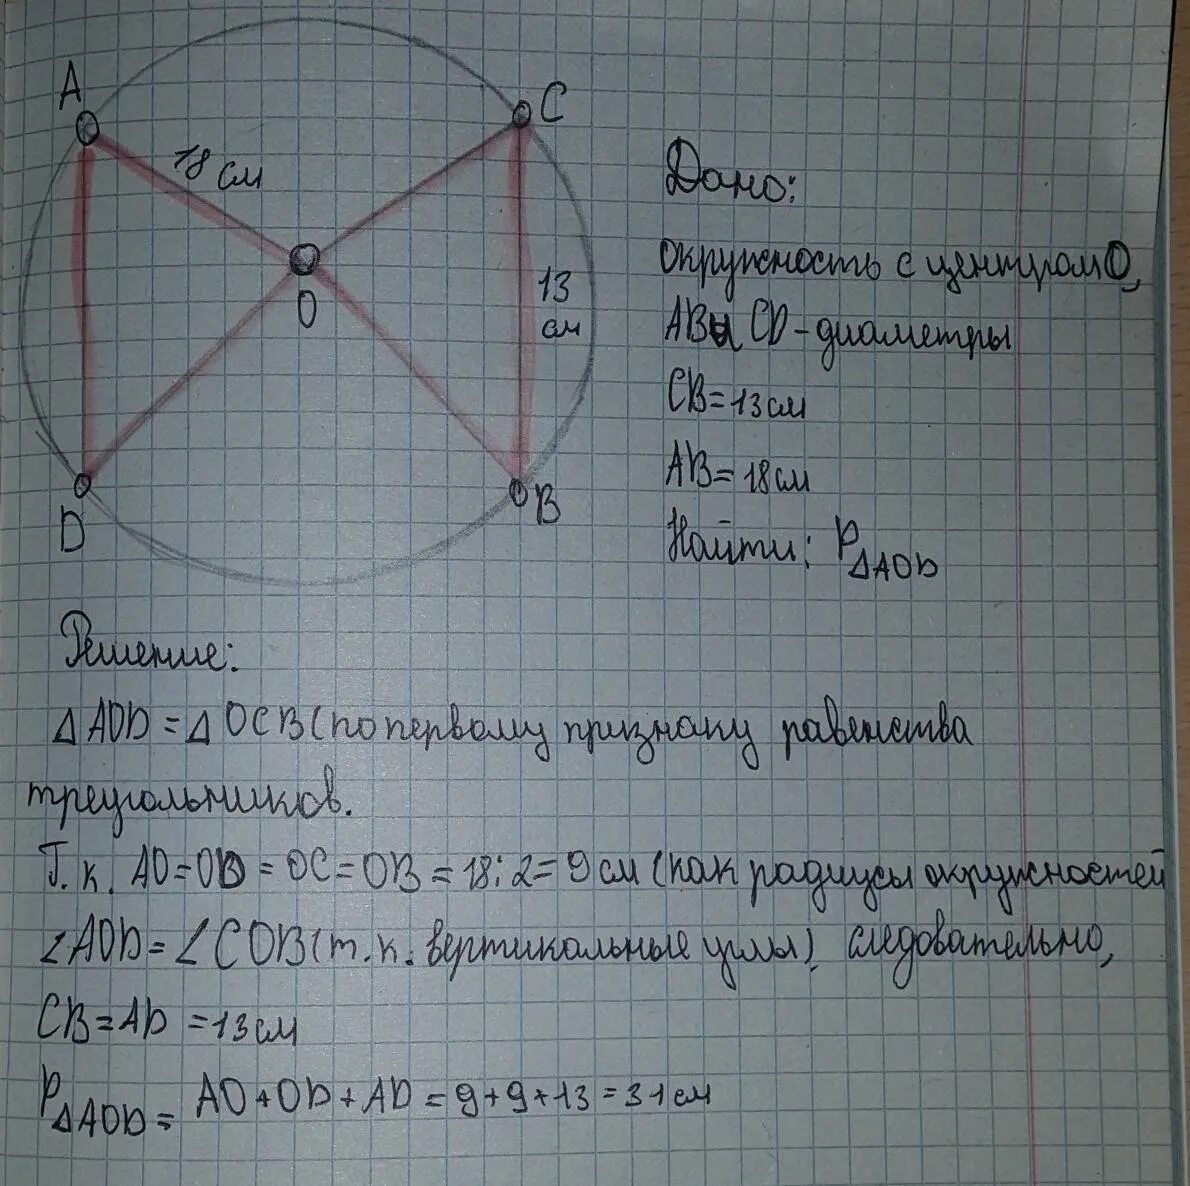 A
C
18 см
O
13
см
D
B
Дано:
окружность с центром O,
AB и CD - диаметры
CB = 13 см
AB = 18 см
Найти: P△AOD
Решение:
△AOD = △OCB (по первому признаку равенства
треугольников.
Т.к. AO = OD = OC = OB = 18:2 = 9 см (как радиусы окружностей
∠AOD = ∠COB (т.к. вертикальные углы), следовательно,
CB = AD = 13 см
P△AOD = AO + OD + AD = 9 + 9 + 13 = 31 см